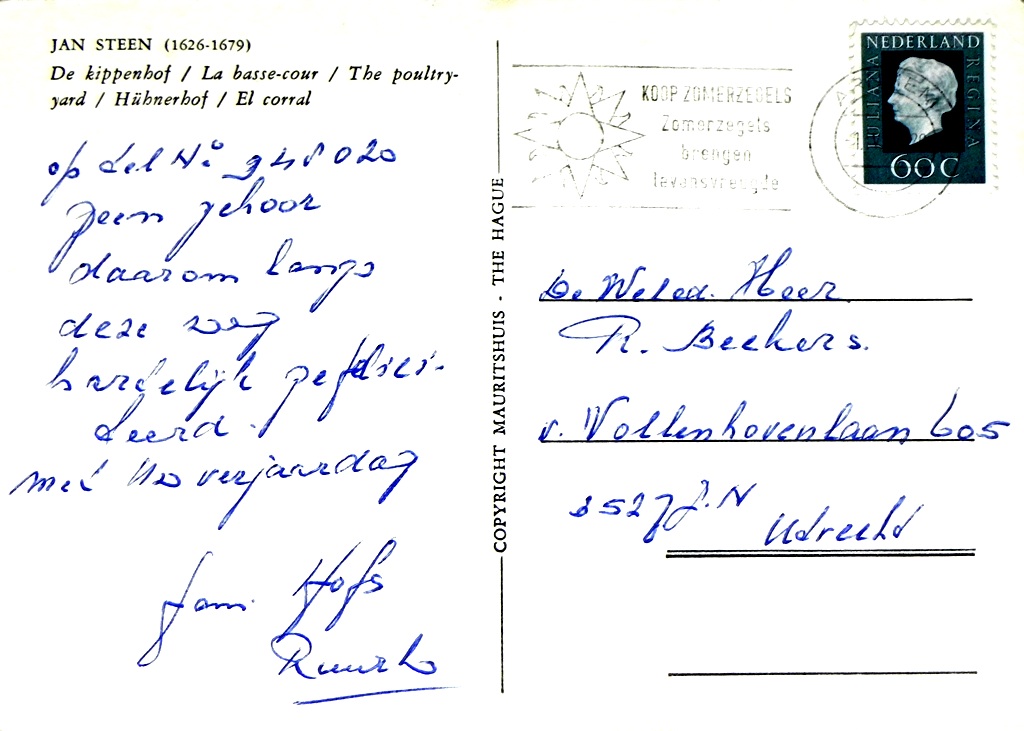 JAN STEEN (1626-1679)
De kippenhof / La basse-cour / The poultry-
yard / Hühnerhof / El corral
op tel No 948020
geen gehoor
daarom langs
deze weg
hartelijk gefelici-
teerd.
met uw verjaardag
Fam. Hofs
Ruurlo
COPYRIGHT MAURITSHUIS - THE HAGUE
KOOP ZOMERZEGELS
Zomerzegels
brengen
levensvreugde
NEDERLAND
JULIANA REGINA
60c
De Weled. Heer
R. Beekers.
v. Vollenhovenlaan 605
3527 J.N Utrecht